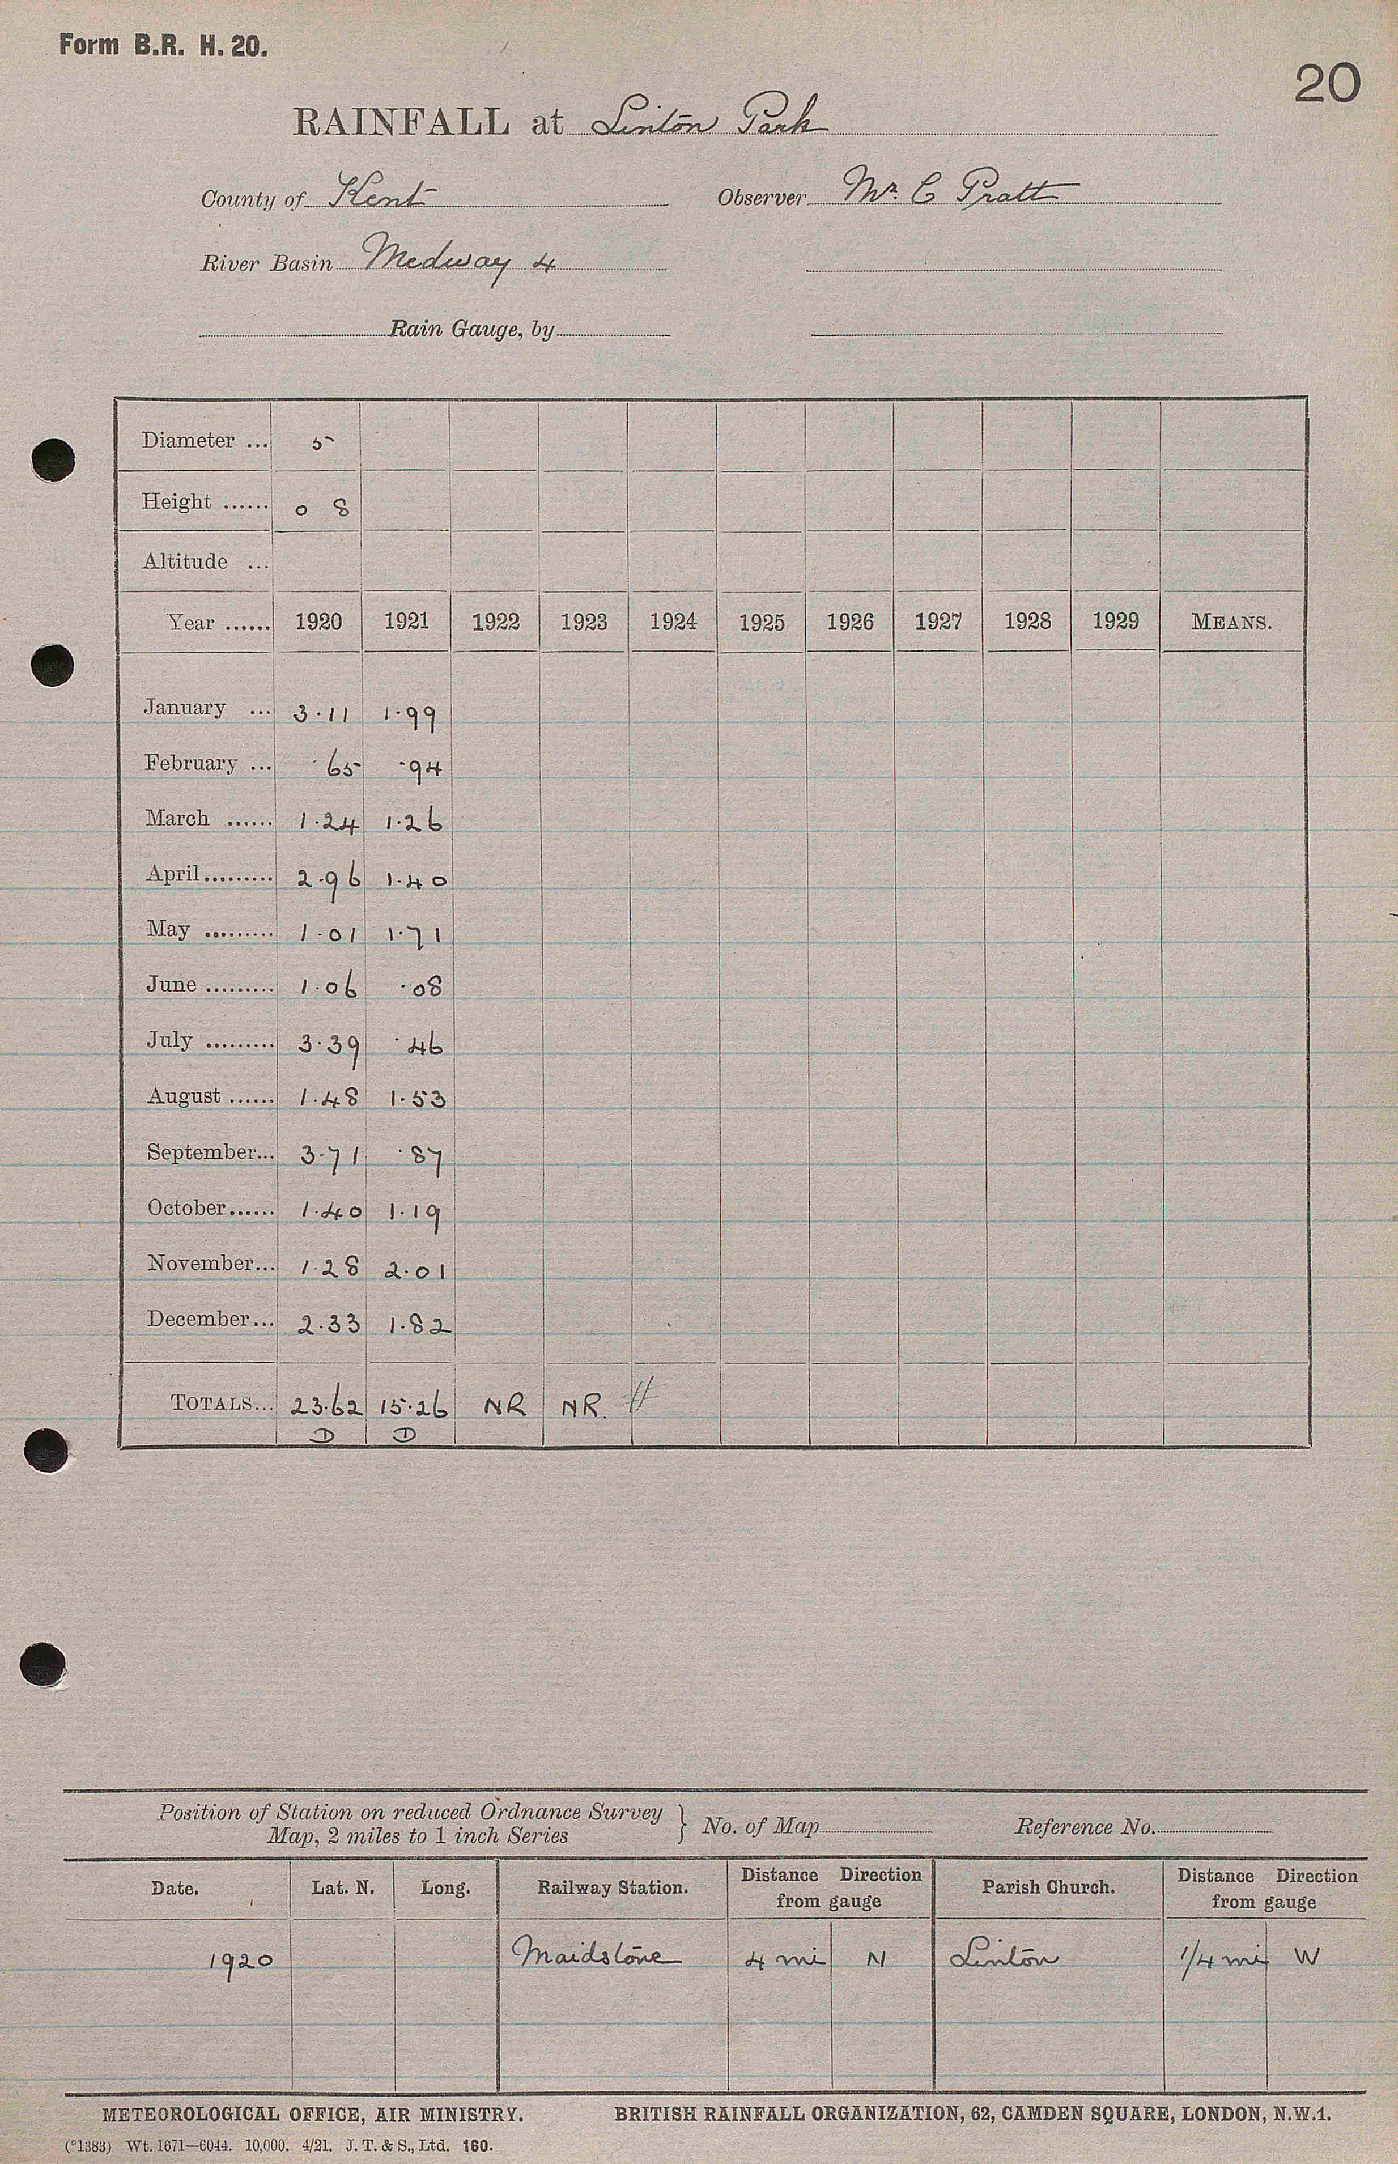 Form B.R. H. 20.
20
RAINFALL at Linton Park
County of Kent Observer Mr. C Pratt
River Basin Medway 4
Rain Gauge, by
Diameter ... 5
Height ...... 0 8
Altitude ...
Year ...... 1920 1921 1922 1923 1924 1925 1926 1927 1928 1929 MEANS.
January ... 3.11 1.99
February ... .65 .94
March ...... 1.24 1.26
April ......... 2.96 1.40
May ......... 1.01 1.71
June ......... 1.06 .08
July ......... 3.39 .46
August ...... 1.48 1.53
September... 3.71 .87
October...... 1.40 1.19
November... 1.28 2.01
December... 2.33 1.82
TOTALS... 23.62 15.26 NR NR.
D D
Position of Station on reduced Ordnance Survey
Map, 2 miles to 1 inch Series } No. of Map Reference No.
Date. Lat. N. Long. Railway Station. Distance Direction from gauge Parish Church. Distance Direction from gauge
1920 Maidstone 4 mi N Linton 1/4 mi W
METEOROLOGICAL OFFICE, AIR MINISTRY. BRITISH RAINFALL ORGANIZATION, 62, CAMDEN SQUARE, LONDON, N.W.1.
(*1383) Wt. 1671—6044. 10,000. 4/21. J. T. & S., Ltd. 160.